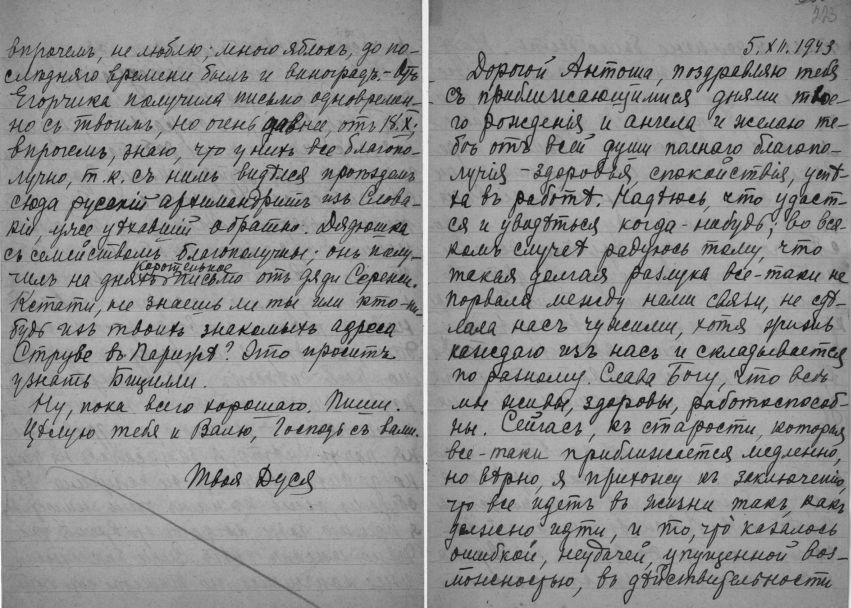 впрочемъ, не люблю; много яблокъ, до по-
слѣдняго времени былъ и виноградъ. — Отъ
Егорчика получила письмо одновремен-
но съ твоимъ, но очень давнее, отъ 18.X,
впрочемъ, знаю, что у нихъ все благопо-
лучно, т.к. съ нимъ видѣлся проѣздомъ
сюда русскій архимандритъ изъ Слова-
кіи, уже уѣхавшій обратно. Дядюшка
съ семействомъ благополучны; онъ полу-
чилъ на дняхъ коротенькое письмо отъ дяди Сережи.
Кстати, не знаешь ли ты или кто-ни-
будь изъ твоихъ знакомыхъ адреса
Струве въ Парижѣ? Это проситъ
узнать Бицилли.
Ну, пока всего хорошаго. Пиши.
Цѣлую тебя и Валю, Господь съ вами.
Твоя Дуся
223
5.XII.1943
Дорогой Антоша, поздравляю тебя
съ приближающимися днями твое-
го рожденія и ангела и желаю те-
бѣ отъ всей души полнаго благопо-
лучія — здоровья, спокойствія, успѣ-
ха въ работѣ. Надѣюсь, что удаст-
ся и увидѣться когда-нибудь; во вся-
комъ случаѣ радуюсь тому, что
такая долгая разлука все-таки не
порвала между нами связи, не сдѣ-
лала насъ чужими, хотя жизнь
каждаго изъ насъ и складывается
по разному. Слава Богу, что всѣ
мы живы, здоровы, работоспособ-
ны. Сейчасъ, къ старости, которая
все-таки приближается медленно,
но вѣрно, я прихожу къ заключенію,
что все идетъ въ жизни такъ, какъ
должно идти, и то, что казалось
ошибкой, неудачей, упущенной воз-
можностью, въ дѣйствительности